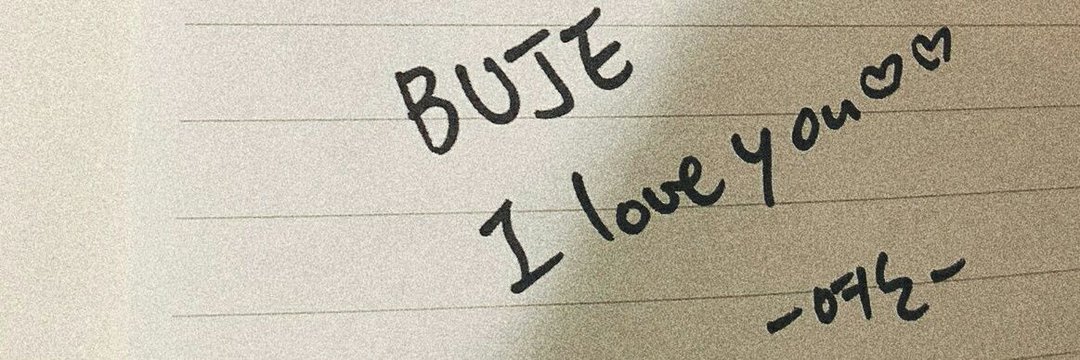 BUJE
I love you♡♡
-여노-